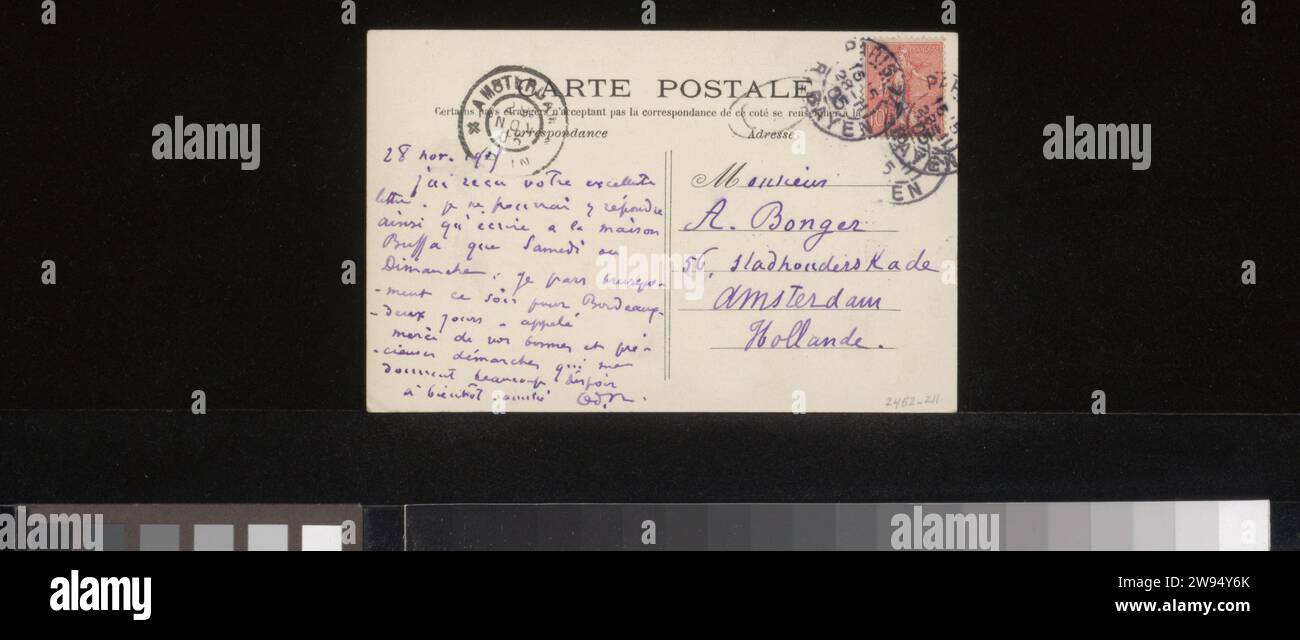 CARTE POSTALE
Certains pays étrangers n'acceptant pas la correspondance de ce coté se renseigner à la
Correspondance
Adresse
AMSTERDAM
NOV
28 nov.
j'ai reçu votre excellente
lettre. je ne pourrai y répondre
ainsi qu'écrire a la maison
Buffa que Samedi ou
Dimanche. je pars brusque-
-ment ce soir pour Bordeaux-
-deux jours - appelé
merci de vos bonnes et pré-
-cieuses démarches qui me
donnent beaucoup d'espoir
à bientôt. amitié
Monsieur
A. Bonger
56, Stadhouderskade
Amsterdam
Hollande.
PARIS
R. BAYEN
10
2452-211
alamy
Image ID: 2W94Y6K
www.alamy.com